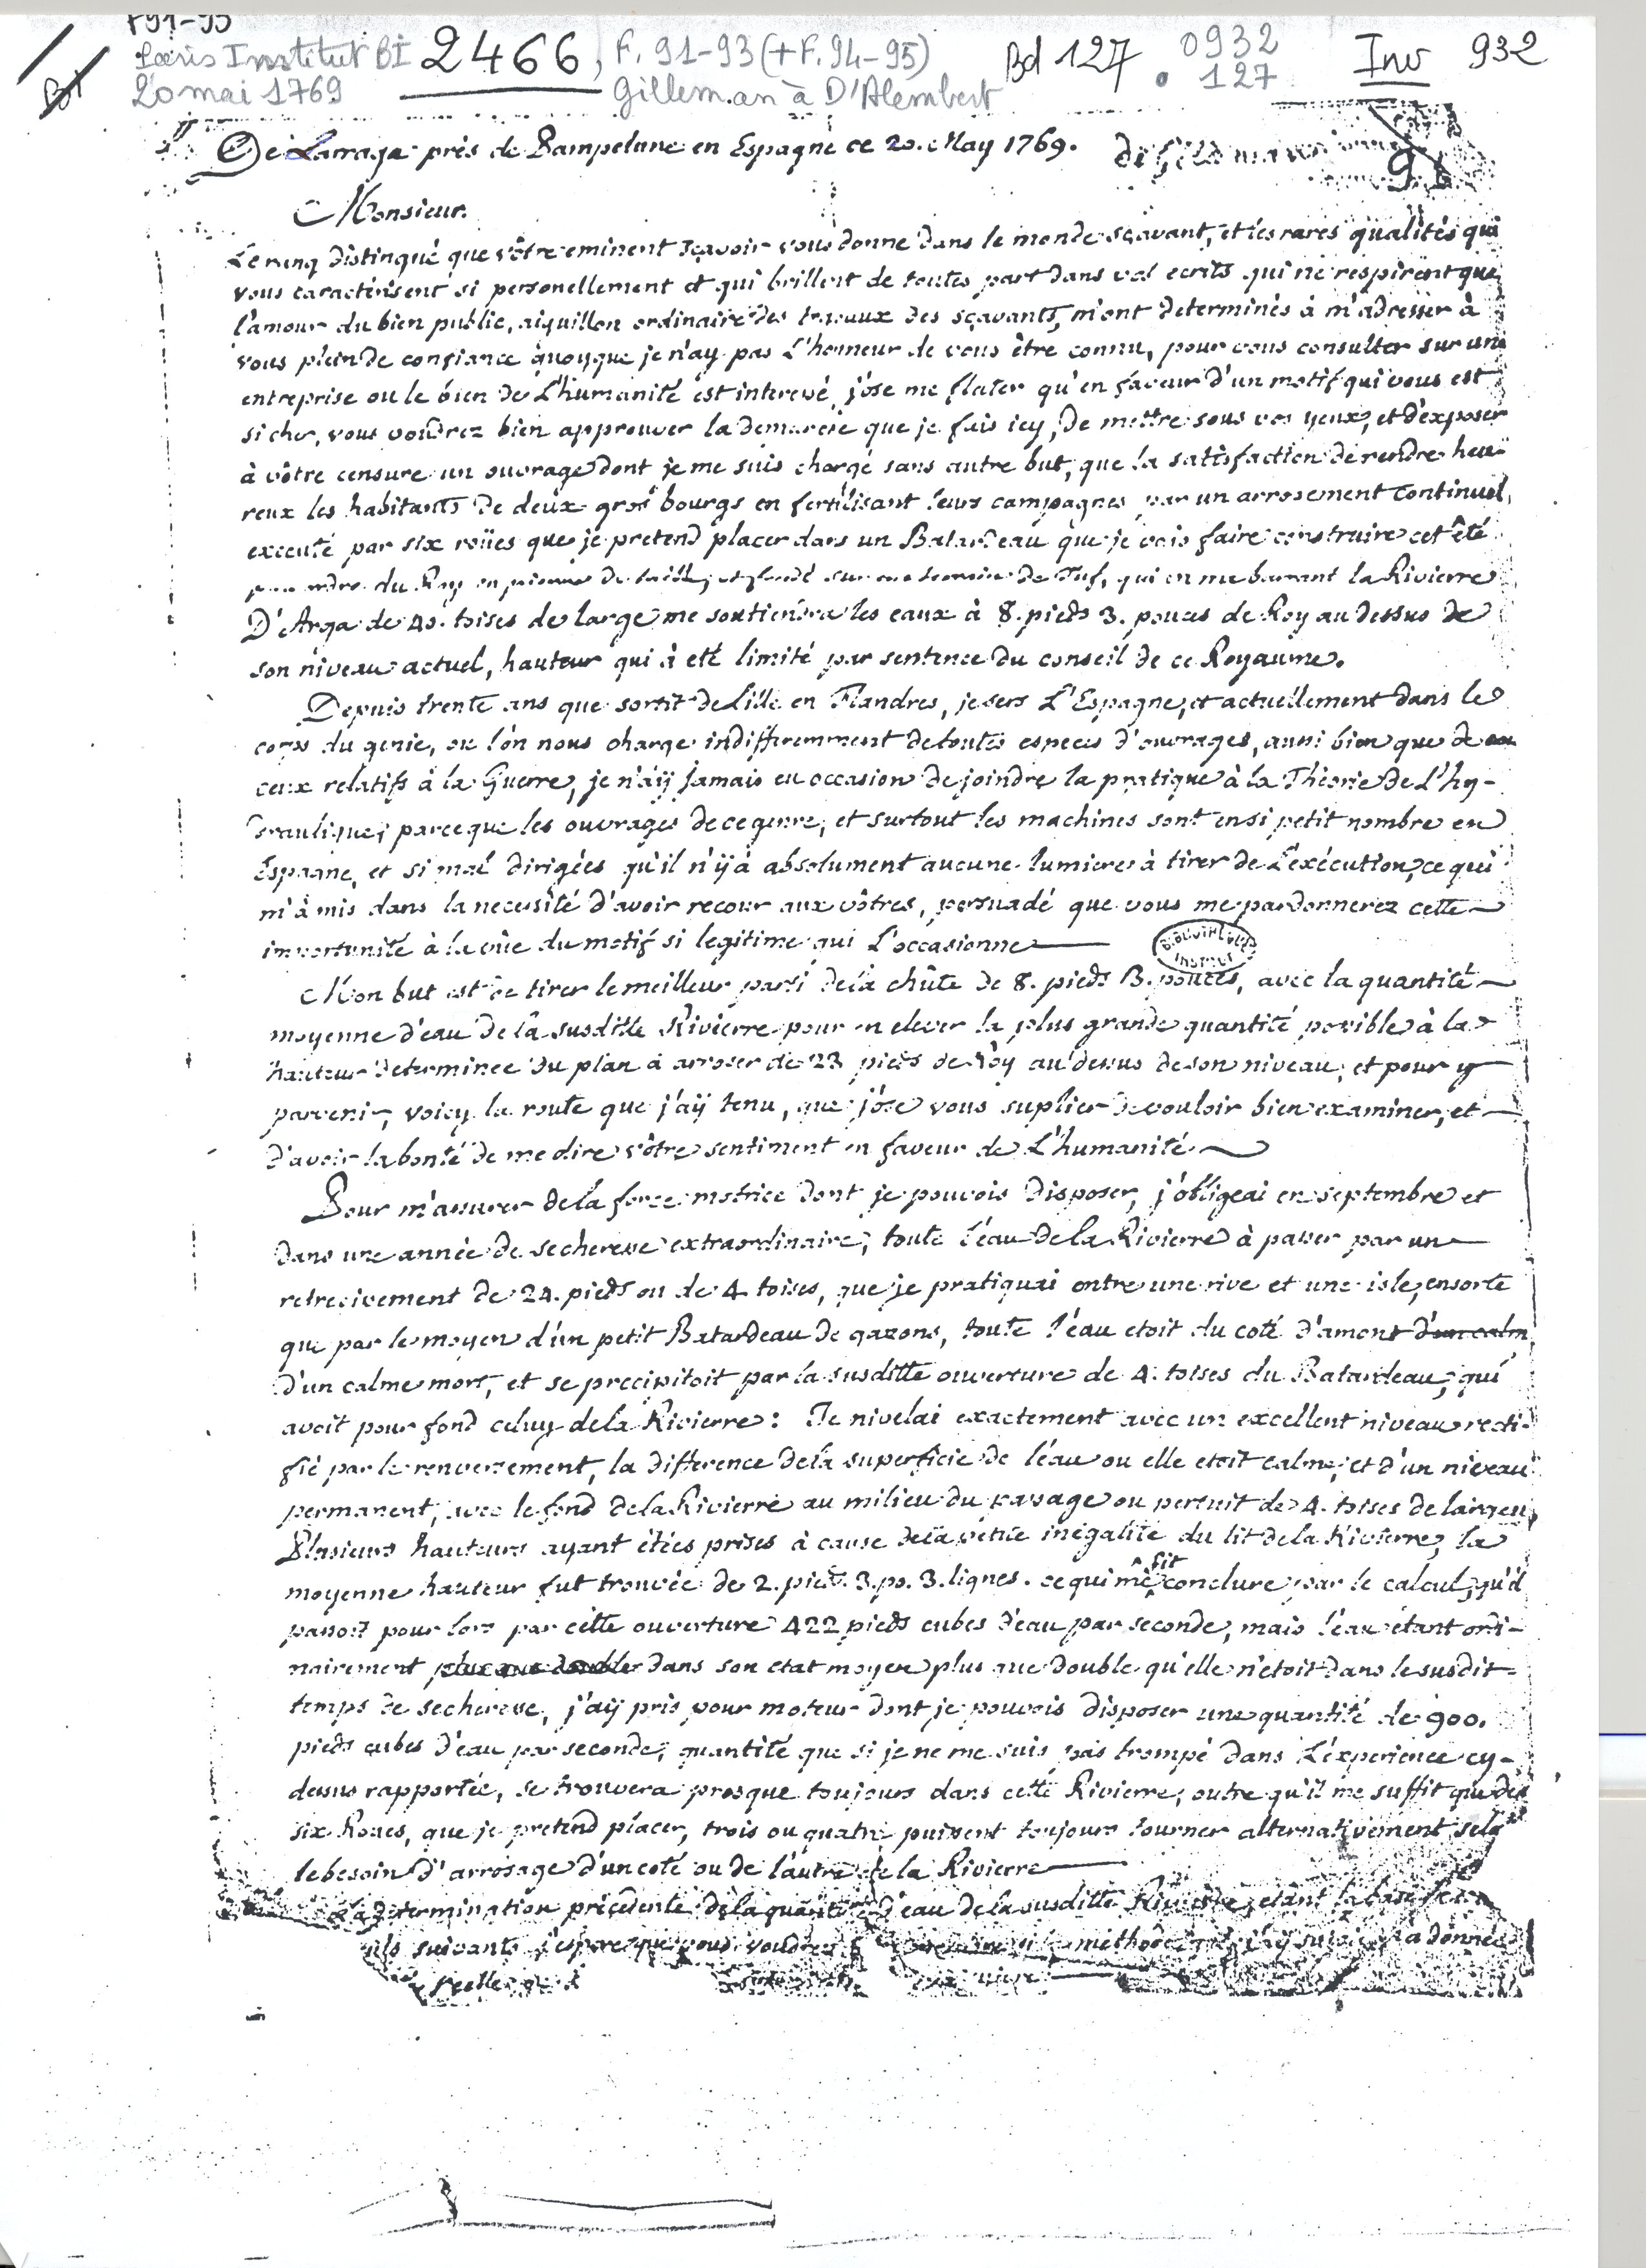 F91-95
Paris Institut BI 2466, F. 91-93 (+F. 94-95) Bd 127. 0932 Inv 932
127
20 mai 1769 Gilleman à D'Alembert
De Larraga près de Pampelune en Espagne ce 20. May 1769. de Gilleman
91
Monsieur.
Le rang distingué que vôtre eminent sçavoir vous donne dans le monde sçavant, et les rares qualités qui
vous caracterisent si personellement et qui brillent de toutes part dans vos ecrits qui ne respirent que
l'amour du bien public, aiguillon ordinaire des travaux des sçavants, m'ont determinés à m'adresser à
vous plein de confiance quoyque je n'ay pas L'honneur de vous être connu, pour vous consulter sur une
entreprise ou le bien de L'humanité est interessé, j'ose me flater qu'en faveur d'un motif qui vous est
si cher, vous voudrez bien approuver la demarche que je fais icy, de mettre sous vos yeux, et d'exposer
à vôtre censure un ouvrage dont je me suis chargé sans autre but, que la satisfaction de rendre heu-
reux les habitants de deux gros bourgs en fertilisant leurs campagnes par un arrosement continuel,
executé par six roües que je pretend placer dans un Batardeau que je vais faire construire cet êté
par ordre du Roy en pierres de taille, et fondé sur un terrain de Tuf, qui en me barrant la Rivierre
D'Arga de 40. toises de large me soutiendra les eaux à 8. pieds 3. pouces de Roy au dessus de
son niveau actuel, hauteur qui à eté limité par sentence du conseil de ce Royaume.
Depuis trente ans que sortit de Lille en Flandres, je sers L'Espagne, et actuellement dans le
corps du genie, ou l'on nous charge indifferemment de toutes especes d'ouvrages, aussi bien que de
ceux relatifs à la Guerre, je n'aÿ jamais eu occasion de joindre la pratique à la Théorie de L'hy-
draulique, parceque les ouvrages de ce genre, et surtout les machines sont en si petit nombre en
Espagne, et si mal dirigées qu'il n'ÿ à absolument aucune lumieres à tirer de L'exécution, ce qui
m'à mis dans la necessité d'avoir recour aux vôtres, persuadé que vous me pardonnerez cette
importunité à la vüe du motif si legitime qui L'occasionne
BIBLIOTHEQUE
INSTITUT
Mon but est de tirer le meilleur parti de la chûte de 8. pieds 3. pouces, avec la quantité
moyenne d'eau de la susditte Rivierre pour en elever la plus grande quantité possible à la
hauteur determinée du plan à arroser de 23 pieds de Roy au dessus de son niveau, et pour y
parvenir, voicy la route que j'aÿ tenu, que j'ose vous suplier de vouloir bien examiner, et
d'avoir la bonté de me dire vôtre sentiment en faveur de L'humanité
Pour m'assurer de la force motrice dont je pouvois disposer, j'obligeai en septembre et
dans une année de secheresse extraordinaire, toute l'eau de la Rivierre à passer par un
retrecissement de 24. pieds ou de 4 toises, que je pratiquai entre une rive et une isle, ensorte
que par le moyen d'un petit Batardeau de gazons, toute l'eau etoit du coté d'amont d'un calm
d'un calme mort, et se precipitoit par la susditte ouverture de 4. toises du Batardeau, qui
avoit pour fond celuy de la Rivierre: Je nivelai exactement avec un excellent niveau recti-
fié par le renversement, la difference de la superficie de l'eau ou elle etoit calme, et d'un niveau
permanent, avec le fond de la Rivierre au milieu du passage ou pertuit de 4. toises de largeur,
Plusieurs hauteurs ayant étées prises à cause de la petite inégalité du lit de la Rivierre, la
moyenne hauteur fut trouvée de 2. pieds. 3. po. 3. lignes. ce qui me fit conclure par le calcul, qu'il
passoit pour lors par cette ouverture 422 pieds cubes d'eau par seconde, mais l'eau étant ordi-
nairement plus que double dans son etat moyen plus que double qu'elle n'etoit dans le susdit
temps de secheresse, j'aÿ pris pour moteur dont je pouvois disposer une quantité de 900.
pieds cubes d'eau par seconde, quantité que si je ne me suis pas trompé dans L'experience cy-
dessus rapportée, se trouvera presque toujours dans cette Rivierre, outre qu'il me suffit que des
six Roues, que je pretend placer, trois ou quatre puissent toujours tourner alternativement selon
le besoin d'arrosage d'un coté ou de l'autre de la Rivierre
La determination précedente de la quantité d'eau de la susditte Rivierre, etant la base
suivants, j'espere que vous voudrez methode j'aÿ donnée